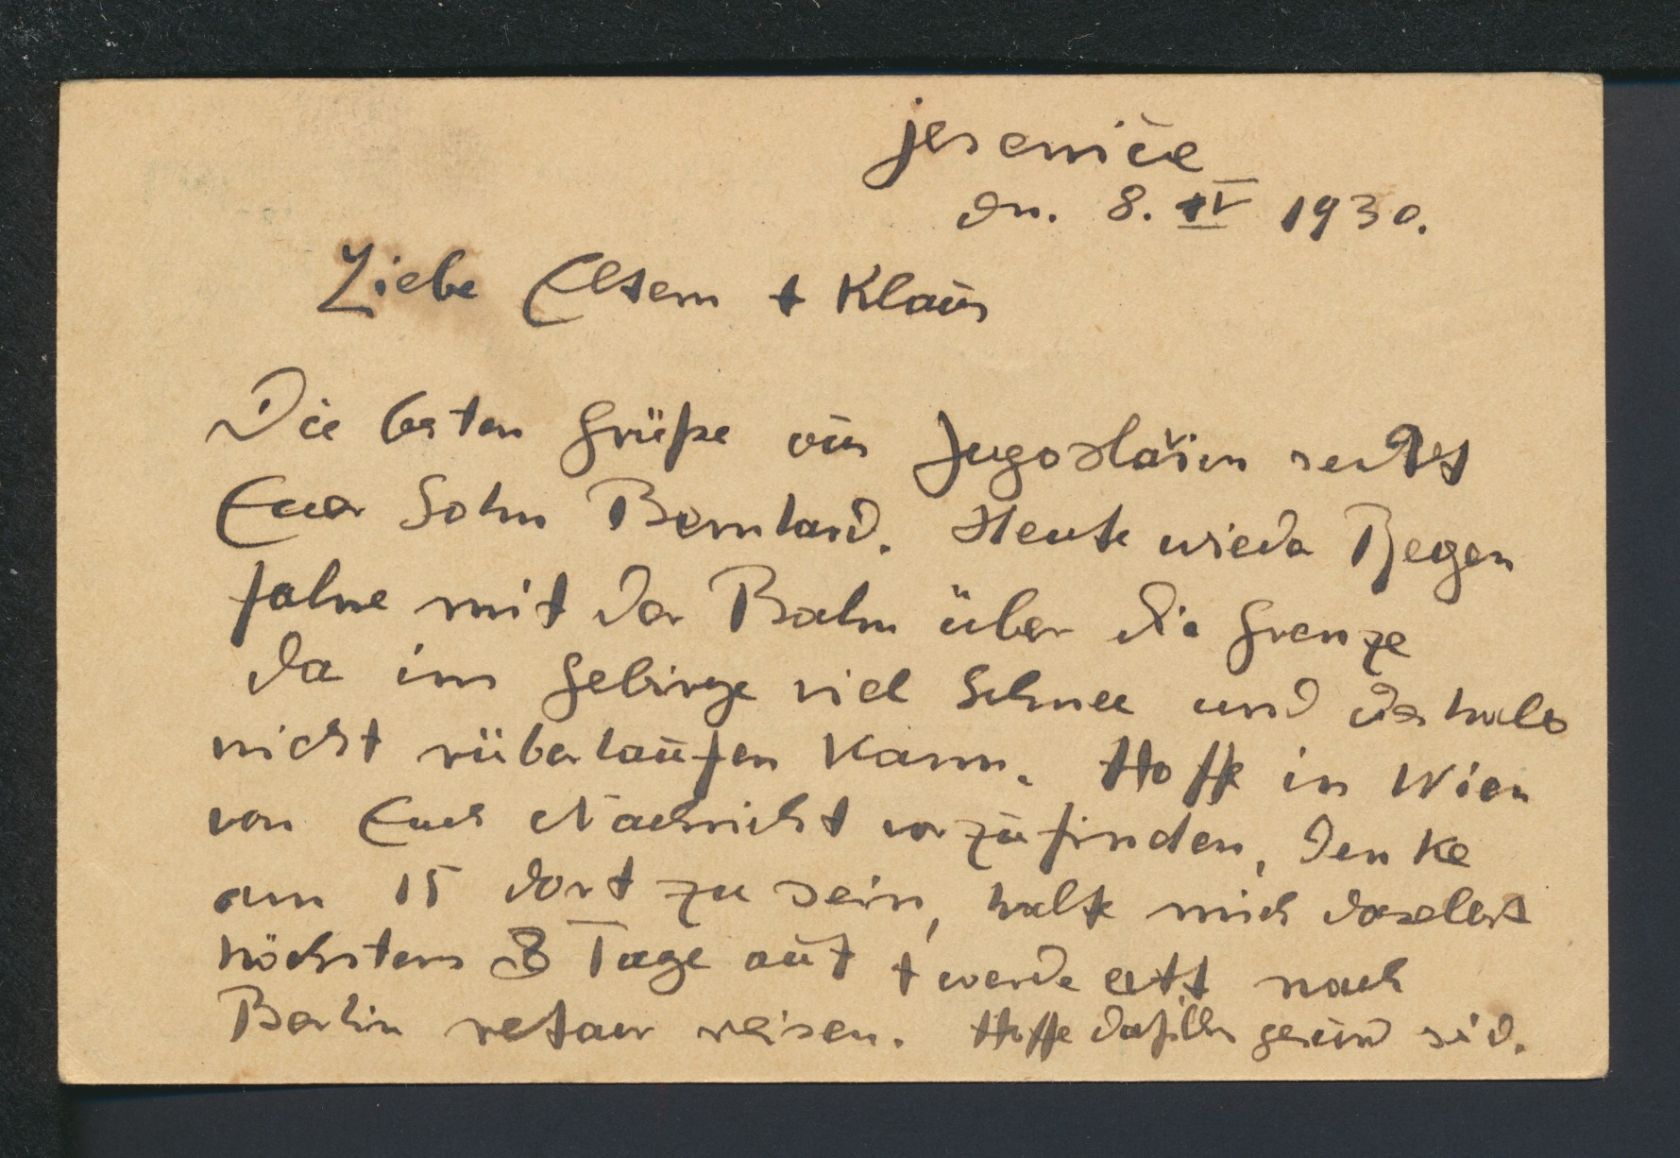 Jesenice
dn. 8. IV 1930.
Liebe Eltern + Klaus
Die besten Grüße aus Jugoslavien sendet
Euer Sohn Bernhard. Heute wieder Regen
fahre mit der Bahn über die Grenze
da im Gebirge viel Schnee und deshalb
nicht rüberlaufen kann. Hoffe in Wien
von Euch Nachricht vorzufinden, denke
am 15 dort zu sein, halte mich daselbst
höchstens 3 Tage auf + werde nach
Berlin retour reisen. Hoffe daß Ihr gesund seid.